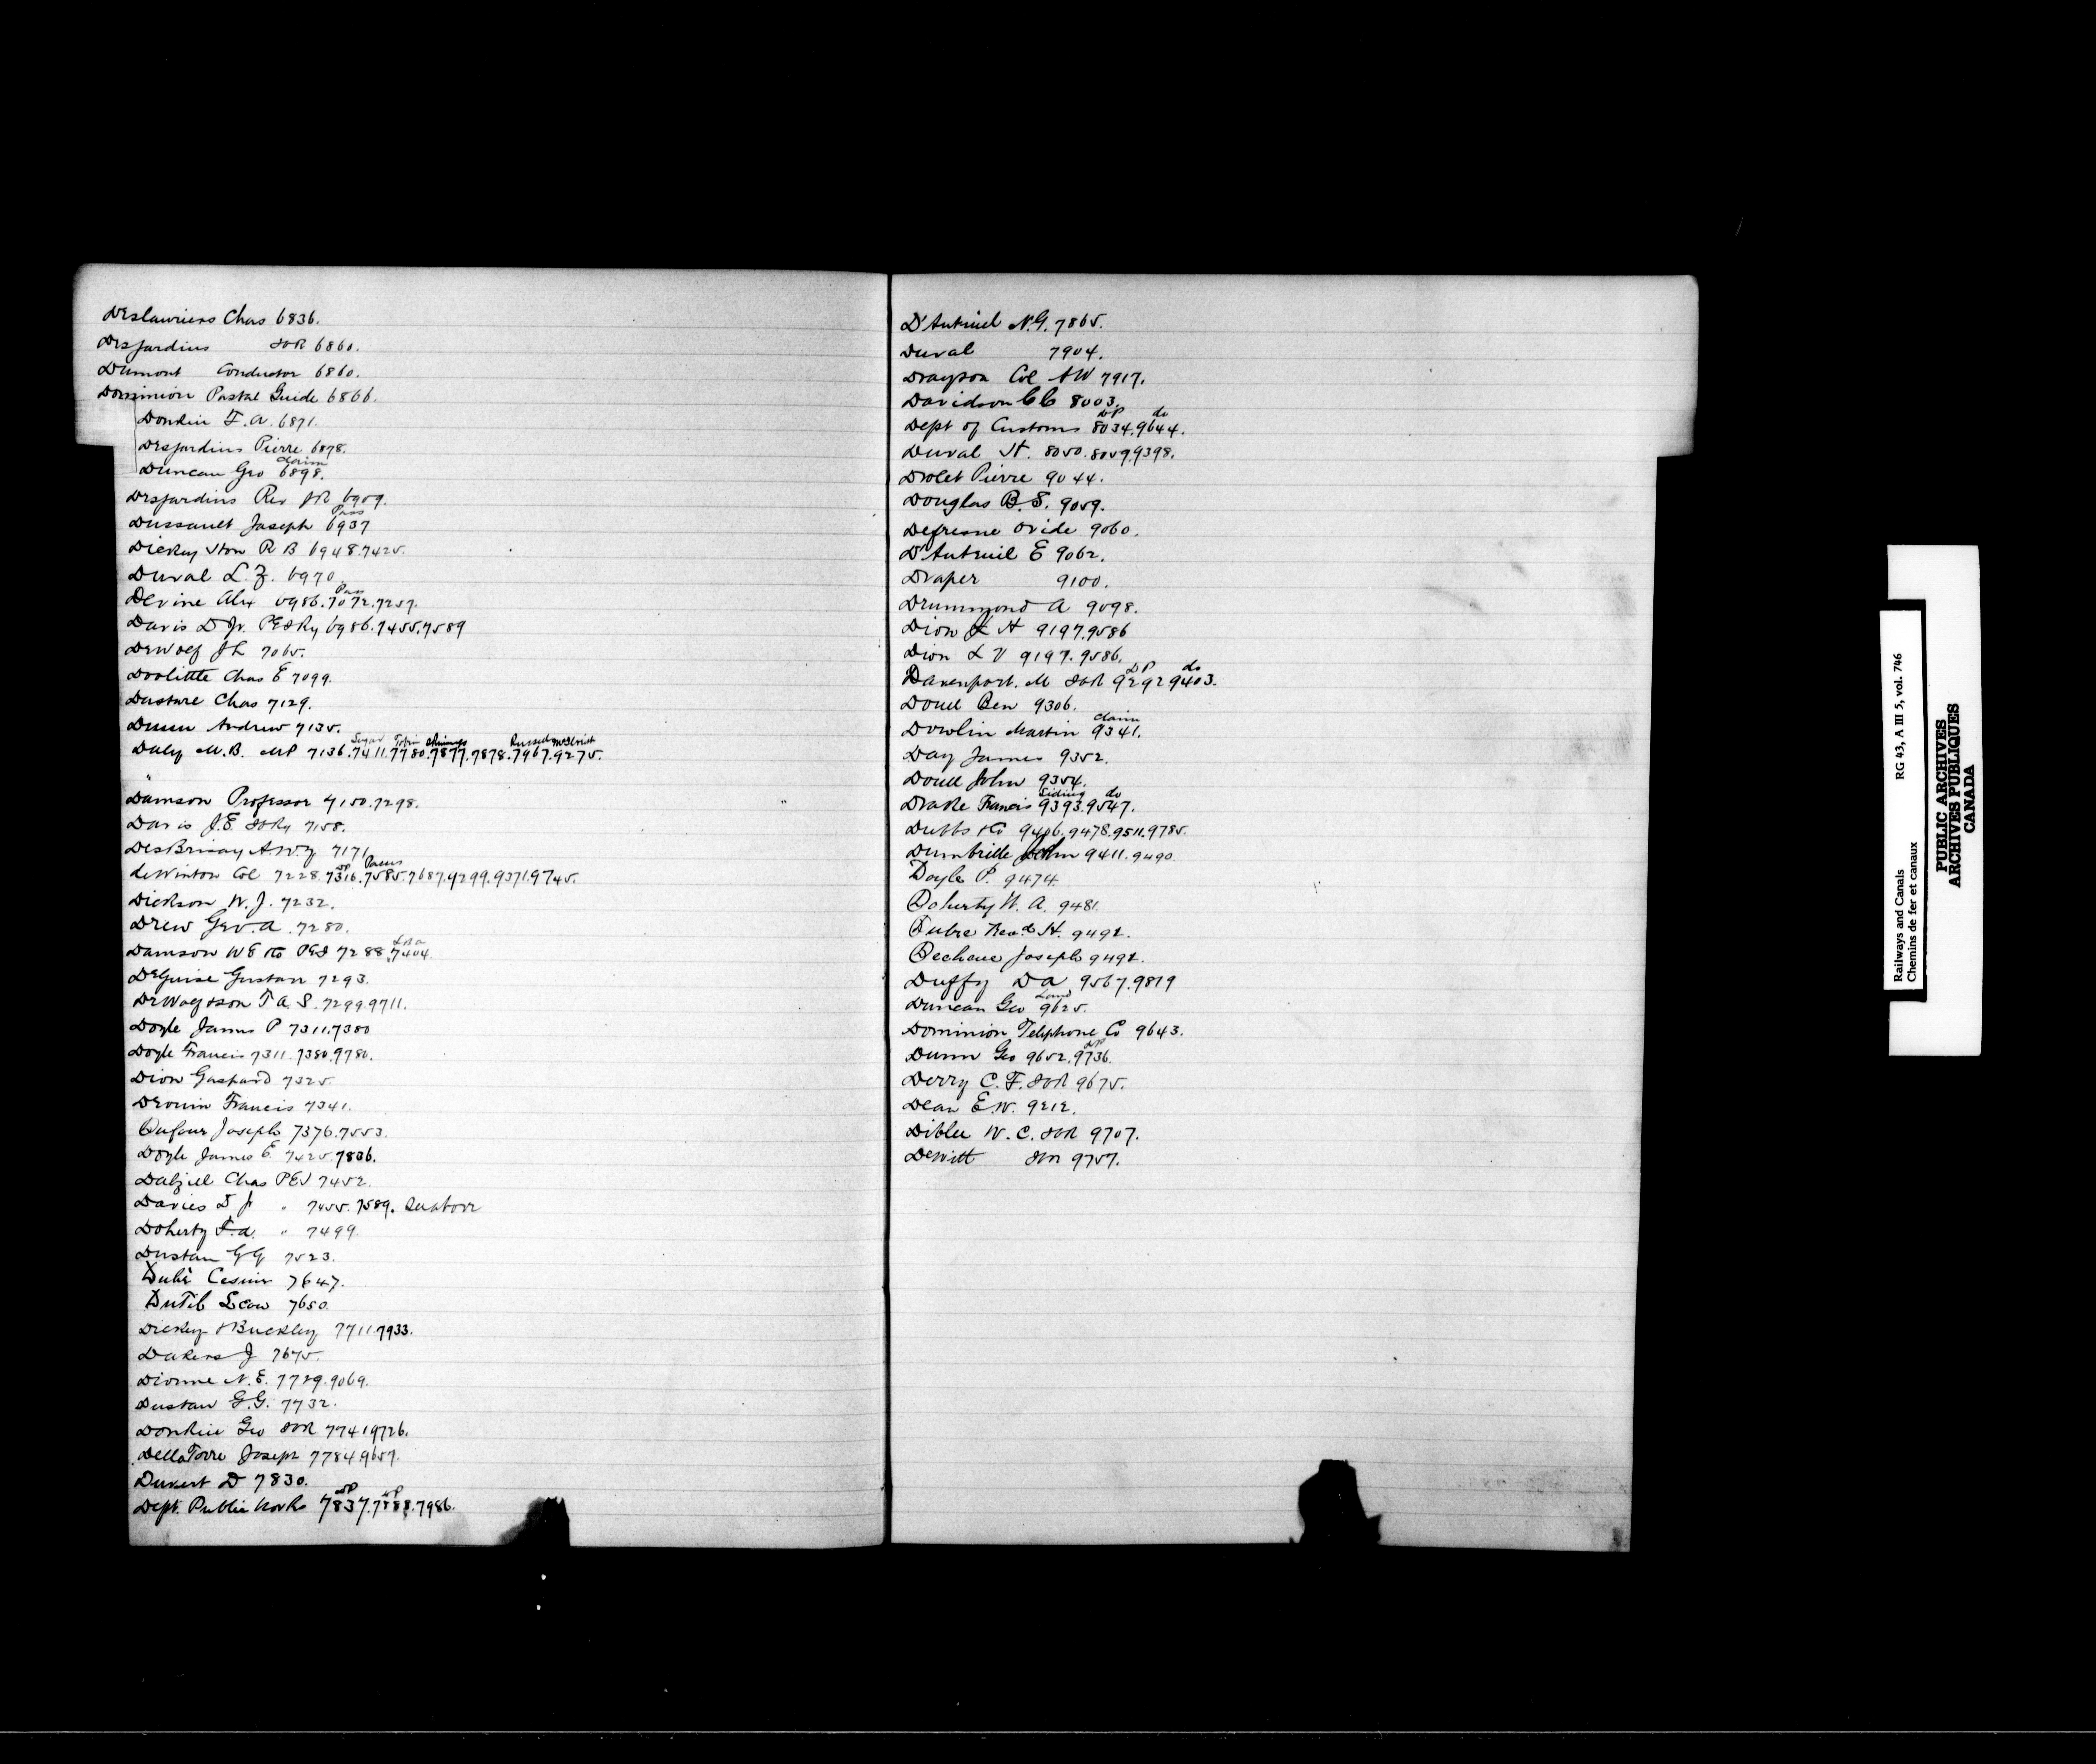 Deslauriers Chas 6836.
Desjardins SOR 6860.
Dumont Conductor 6860.
Dominion Postal Guide 6866.
Donkin F. A. 6871.
Desjardins Pierre 6878.
claim
Duncan Geo 6898.
Desjardins Rev JR 6909.
Pass
Dussault Joseph 6937
Dickey Hon R B 6948.7425.
Duval L. Z. 6970.
Pass
Devine Alex 6986.7072.7257.
Davis D Jr. PEIRy 6986.7455.7589
DeWolf J L 7065.
Doolittle Chas E 7099.
Dastare Chas 7129.
Dunn Andrew 7135.
Daly M.B. MP 7136.7411.7780.7877.7878.7967.9275.
"
Damson Professor 7150.7298.
Davis J.E. 7158.
DesBrisay A W. 7171
DP Passes
deWinton Col 7228.7316.7585.7687.9299.9371.9745.
Dickson W. J. 7232.
Drew Geo. A. 7280.
Damson W E & Co PEI 7288.7404
DeGuise Gustave 7293.
DeWolf & Son T A. S. 7299.9711.
Doyle James P 7311.7380
Doyle Francis 7311.7380.9780.
Dion Gaspard 7325.
Drouin Francis 7341.
Dufour Joseph 7376.7553.
Doyle James E. 7425.7836.
Dalziel Chas PEI 7452.
Davies D Jr " 7455.7589.
Doherty F. A. " 7499.
Dustan G G 7523.
Dubé Cesimir 7647.
DuTib Leon 7650.
Dickey & Buckley 7711.7933.
Dakers J 7675.
Dionne N. E. 7729.9069.
Dustan G. G. 7732.
Donkin Geo SOR 7741.9726.
DellaTorre Joseph 7784.9659.
Duvert D 7830.
DP DP
Dept. Public Works 7837.7888.7986.
D'Auteuil N. G. 7865.
Duval 7904.
Drayson Col AW 7917.
Davidson CC 8003.
DP do
Dept of Customs 8034.9644.
Duval H. 8050.8059.9398.
Drolet Pierre 9044.
Douglas B. S. 9059.
Defresne Ovide 9060.
D'Auteuil E 9062.
Draper 9100.
Drummond A 9098.
Dion L H 9197.9586
Dion L V 9197.9586.
DP do
Davenport. M SOR 9292 9403.
Doull Ben 9306.
claim
Dowlin Martin 9341.
Day James 9352.
Doull John 9354.
Siding do
Drake Francis 9393.9547.
Dubbs & Co 9406.9478.9511.9785.
Dumbrille John 9411.9490.
Doyle P. 9474.
Doherty W. A. 9481.
Dubre Revd H. 9492.
Dechene Joseph 9492.
Duffy DA 9567.9819
Land
Duncan Geo 9625.
Dominion Telephone Co 9643.
DP
Dunn Geo 9652.9736.
Derry C. F. SOR 9675.
Dean E. W. 9212.
Diblee W. C. SOR 9707.
DeWitt SOR 9757.
Railways and Canals RG 43, A III 5, vol. 746
Chemins de fer et canaux
PUBLIC ARCHIVES
ARCHIVES PUBLIQUES
CANADA